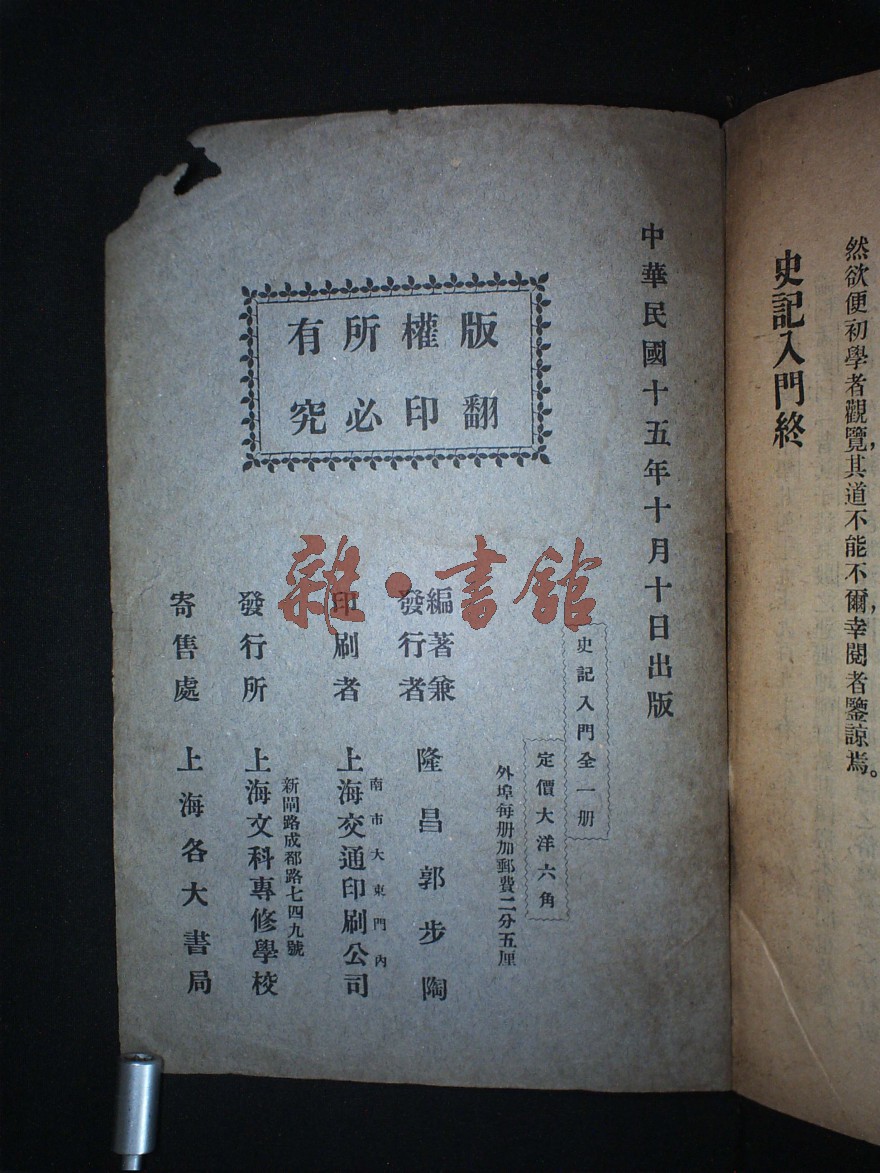 然欲便初學者觀覽,其道不能不爾,幸閱者鑒諒焉。
史記入門終
中華民國十五年十月十日出版
版權所有
翻印必究
史記入門全一册
定價大洋六角
外埠每册加郵費二分五厘
編著兼發行者 隆昌郭步陶
印刷者 南市大東門內 上海交通印刷公司
發行所 新閘路成都路七四九號 上海文科專修學校
寄售處 上海各大書局
雜·書館